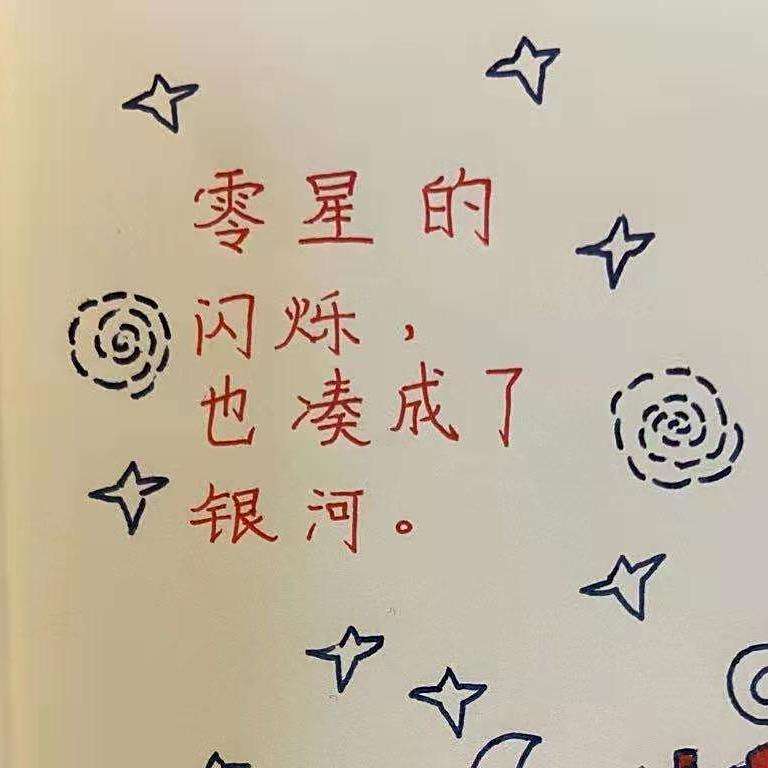 零星的
闪烁，
也凑成了
银河。